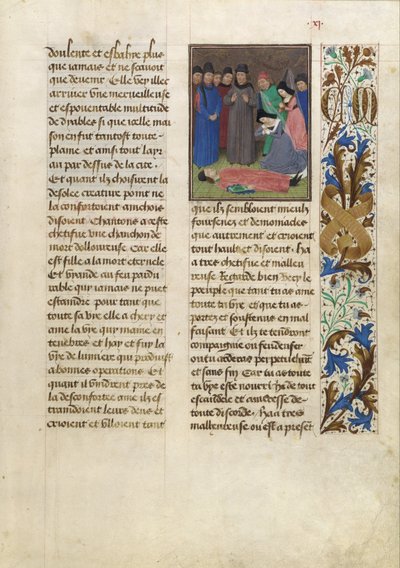 .xi.
doulente et esbahie plus
que iamais et ne scavoit
que devenir Elle vey illec
arriver vne merveilleuse
et espoventable multitude
de dyables si que icelle mai
son en fut tantost toute
plaine et ainsi tout lay
au par dessus de la cite.
Et quant ilz choisirent la
desolee creature point ne
la confortoient aincois
disoient Chantons a ceste
chetifue vne chancon de
mort dolloureuse Car elle
est fille a la mort eternele
Et viande au feu pardu
rable qui iamais ne puet
estaindre pour tant que
toute sa vie elle a chery et
ame la vie qui maine en
tenebres et hay et fuy la
vie de lumiere qui produist
a bonnes operations Et
quant ilz vindrent pres de
la desconfortee ame ilz es
traindoient leurs dens et
crioient et vlloient tant
que ilz sembloient mieulx
foursenez et demoniacles
que autrement et crioient
tout hault et disoient. Ha
a tres chetifue et malleu
reuse Regarde bien Vecy le
poeuple que tant tu as ame
toute ta vie et que tu as
portez et soustenus en mal
faisant Et ilz te tendront
compaignie ou feu denfer
ou tu arderas perpetuelement
et sans fin Car tu as toute
ta vie este nourrice de tout
escandele et ameresse de
toute discorde. Haa tres
malleureuse ou est a preset